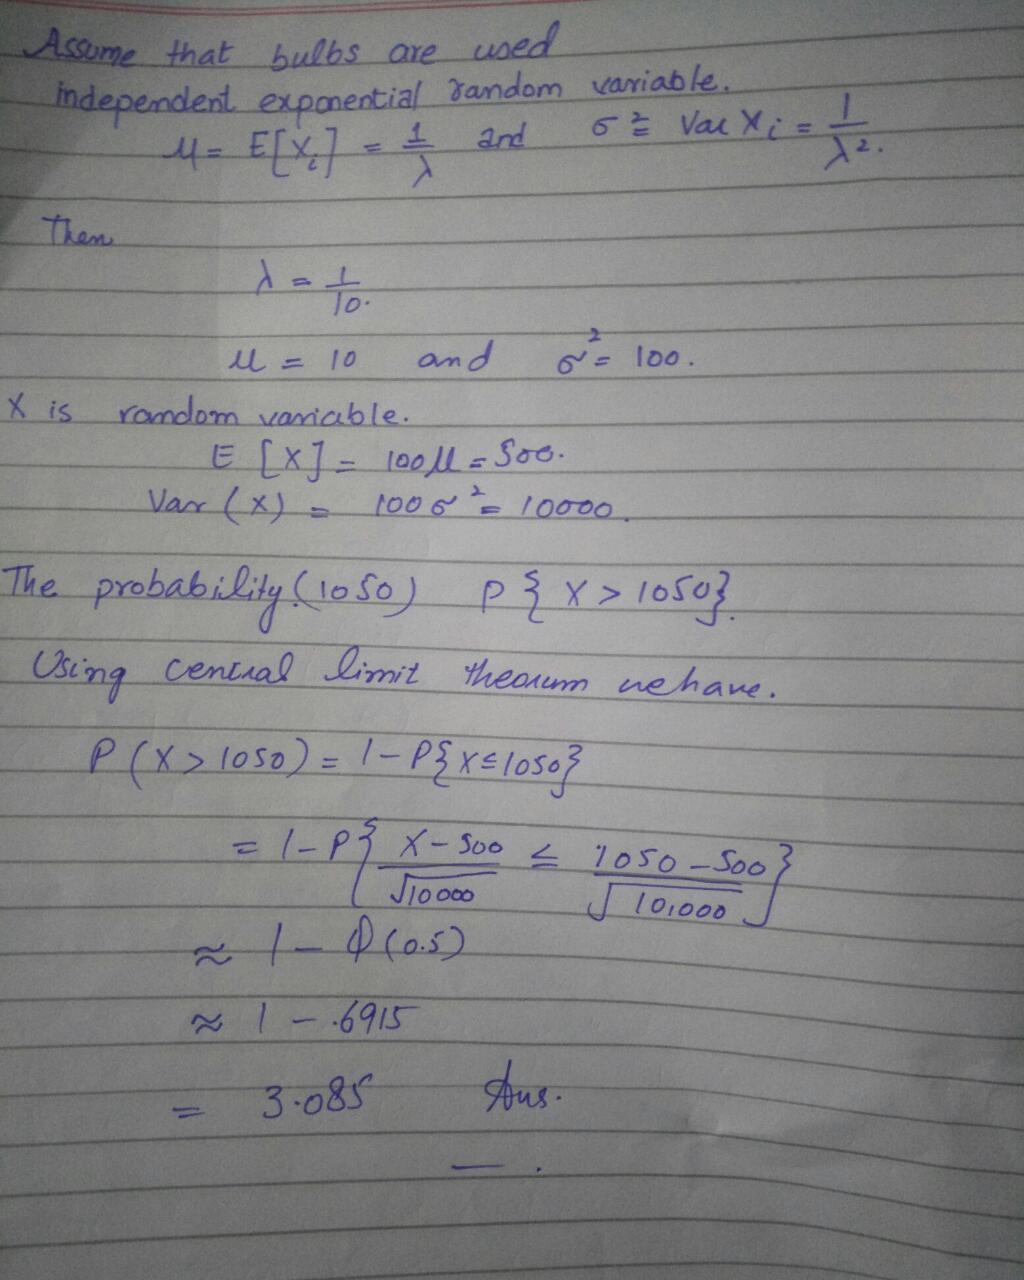 Assume that bulbs are used
independent exponential random variable.
μ = E[Xi] = 1/λ and σ² = Var Xi = 1/λ².
Then
λ = 1/10.
μ = 10 and σ² = 100.
X is random variable.
E [X] = 100μ = 500.
Var (X) = 100σ² = 10000.
The probability (1050) P{X > 1050}.
Using central limit theorum we have.
P (X > 1050) = 1 - P{X ≤ 1050}
= 1 - P{X - 500/√10000 ≤ 1050 - 500/√10,000}
≈ 1 - Φ(0.5)
≈ 1 - .6915
= 3.085 Ans.